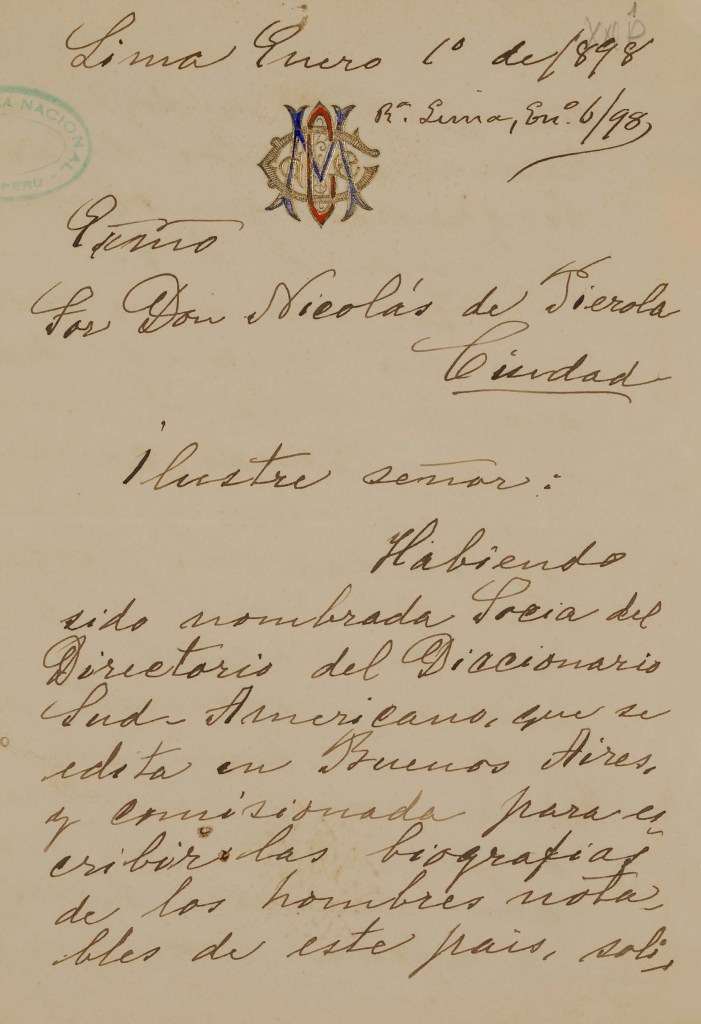 Lima Enero 1º de 1898
Rª. Lima, Enº. 6/98
A NACIONAL
PERU
Exmo
Sor Don Nicolás de Pierola
Ciudad
Ilustre señor:
Habiendo
sido nombrada Socia del
Directorio del Diccionario
Sud-Americano, que se
edita en Buenos Aires,
y comisionada para es
cribir las biografias
de los hombres nota-
bles de este pais, soli-